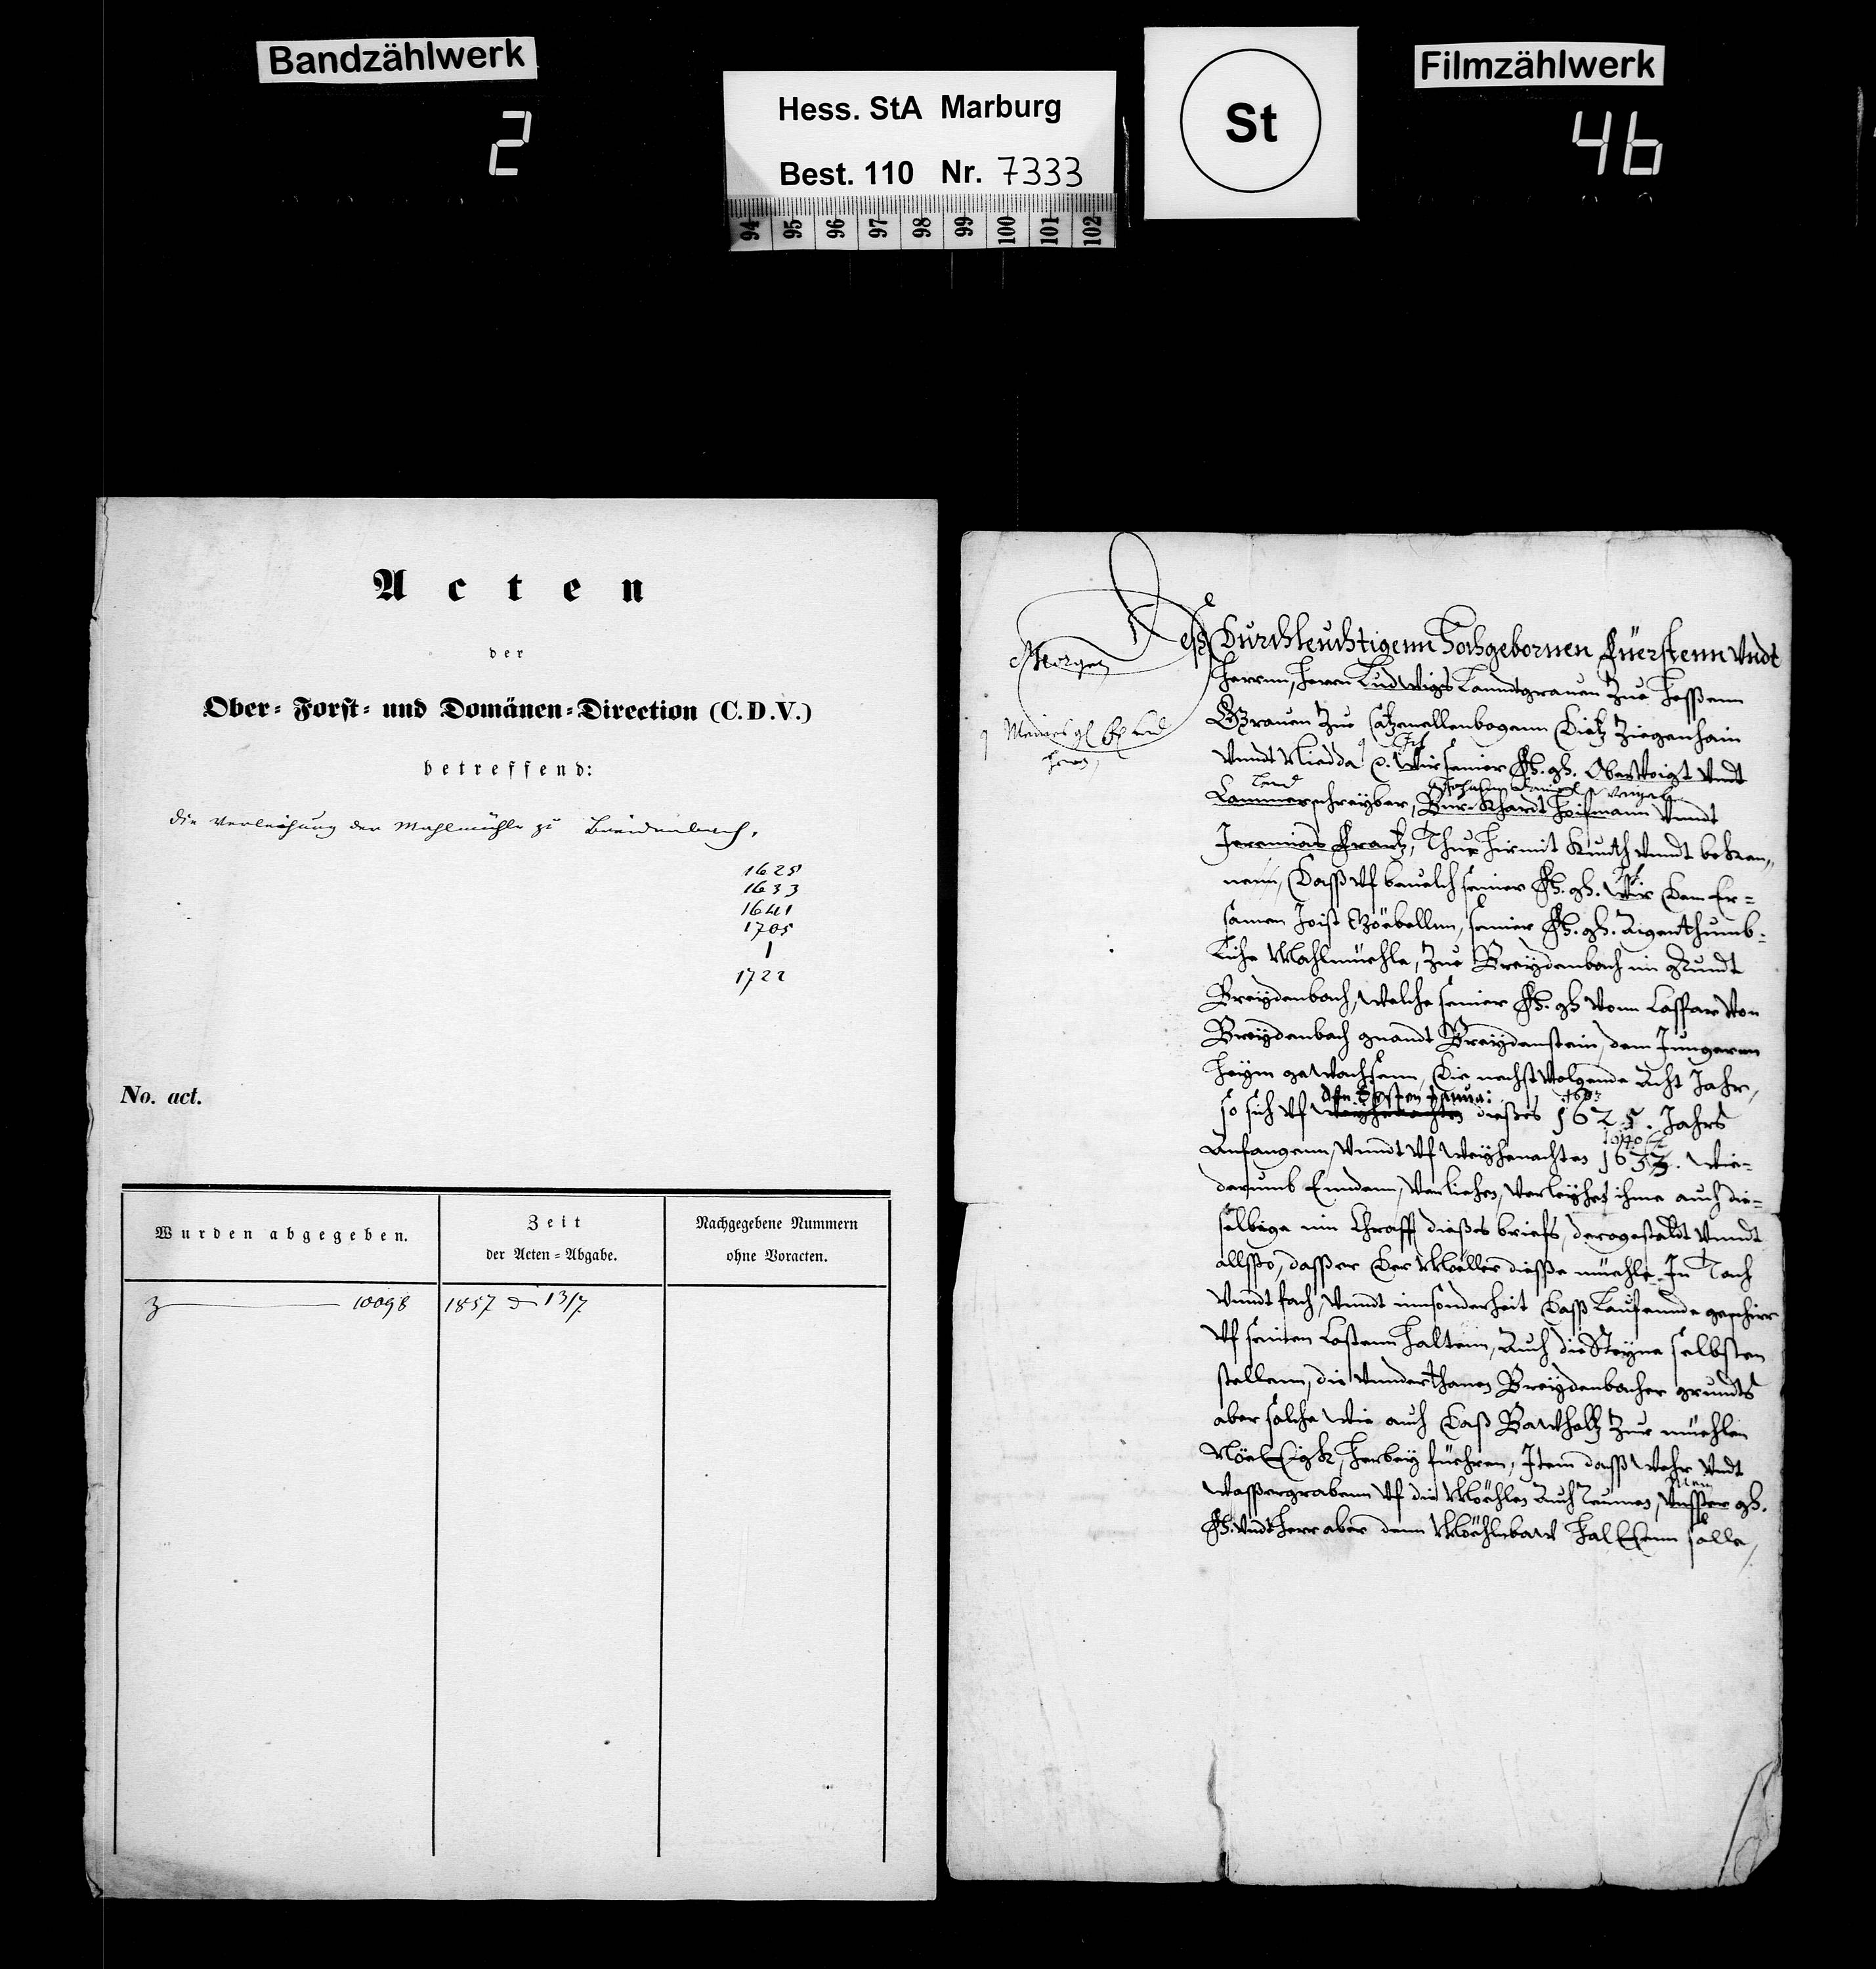 Bandzählwerk
2
Hess. StA Marburg
Best. 110 Nr. 7333
94 95 96 97 98 99 100 101 102
St
Filmzählwerk
46
Acten
der
Ober- Forst- und Domänen-Direction (C.D.V.)
betreffend:
die Verleihung der Mahlmühle zu Breidenbach.
1625
1633
1641
1705
1
1722
No. act.
Wurden abgegeben.
Zeit
der Acten-Abgabe.
Nachgegebene Nummern
ohne Voracten.
3 10098
1857 13/7
Deß Durchleuchtigenn Hochgebornen Füerstenn Vndt
Herrnn, Herrn Ludwigs Lanndtgrauen Zue Heßenn
Grauen Zue Catzenellenbogenn Dietz Ziegenhain
Vnndt Niedda Wir seiner F. gh. Obervoigt Vndt
Land
Cammerschreyber, Burckhardt Hoffmann Vnndt
Jeremias Frantz, Thue hirmit kundt Vnndt beken„
nenn, Daß vf beuelch seiner F. gh. Wir Dem Er=
samen Joist Göebellnn, seiner F. gh. Aigenthumb=
liche Mahlmüehle, Zue Breydenbach im Grundt
Breydenbach, welche seiner F. gh von Caspar von
Breydenbach gnandt Breydenstein, dem Jungeren
heym gewachsenn, Die nechst volgende Acht Jahr,
den Ersten Janua:
so sich vf dießes 1625. Jahrs
Anfangenn, Vnndt vf Weyhenachten 1633. wie=
derumb Enndenn, verliehen, verleyhe ihme auch die=
selbige in Chrafft dießes briefs, derogestaldt Vnndt
allßo, daß er Der Moeller dieße müehle In Dach
Vnndt fach, Vnndt insonderheit Daß Lauffennde geschirr
vf seinen Costenn haltenn, Auch die Steyne selbsten
stellenn, die Vnderthanen Breydenbacher grundts
aber solche wie auch Daß Bawholtz Zur müehlen
Nöettigk, herbey füehren, Item daß Wehr Vndt
Waßergrabenn vf die Moehlen Auch Reumen, gh.
F. Vndt Herr aber denn Moehlnbaw halttenn solle,